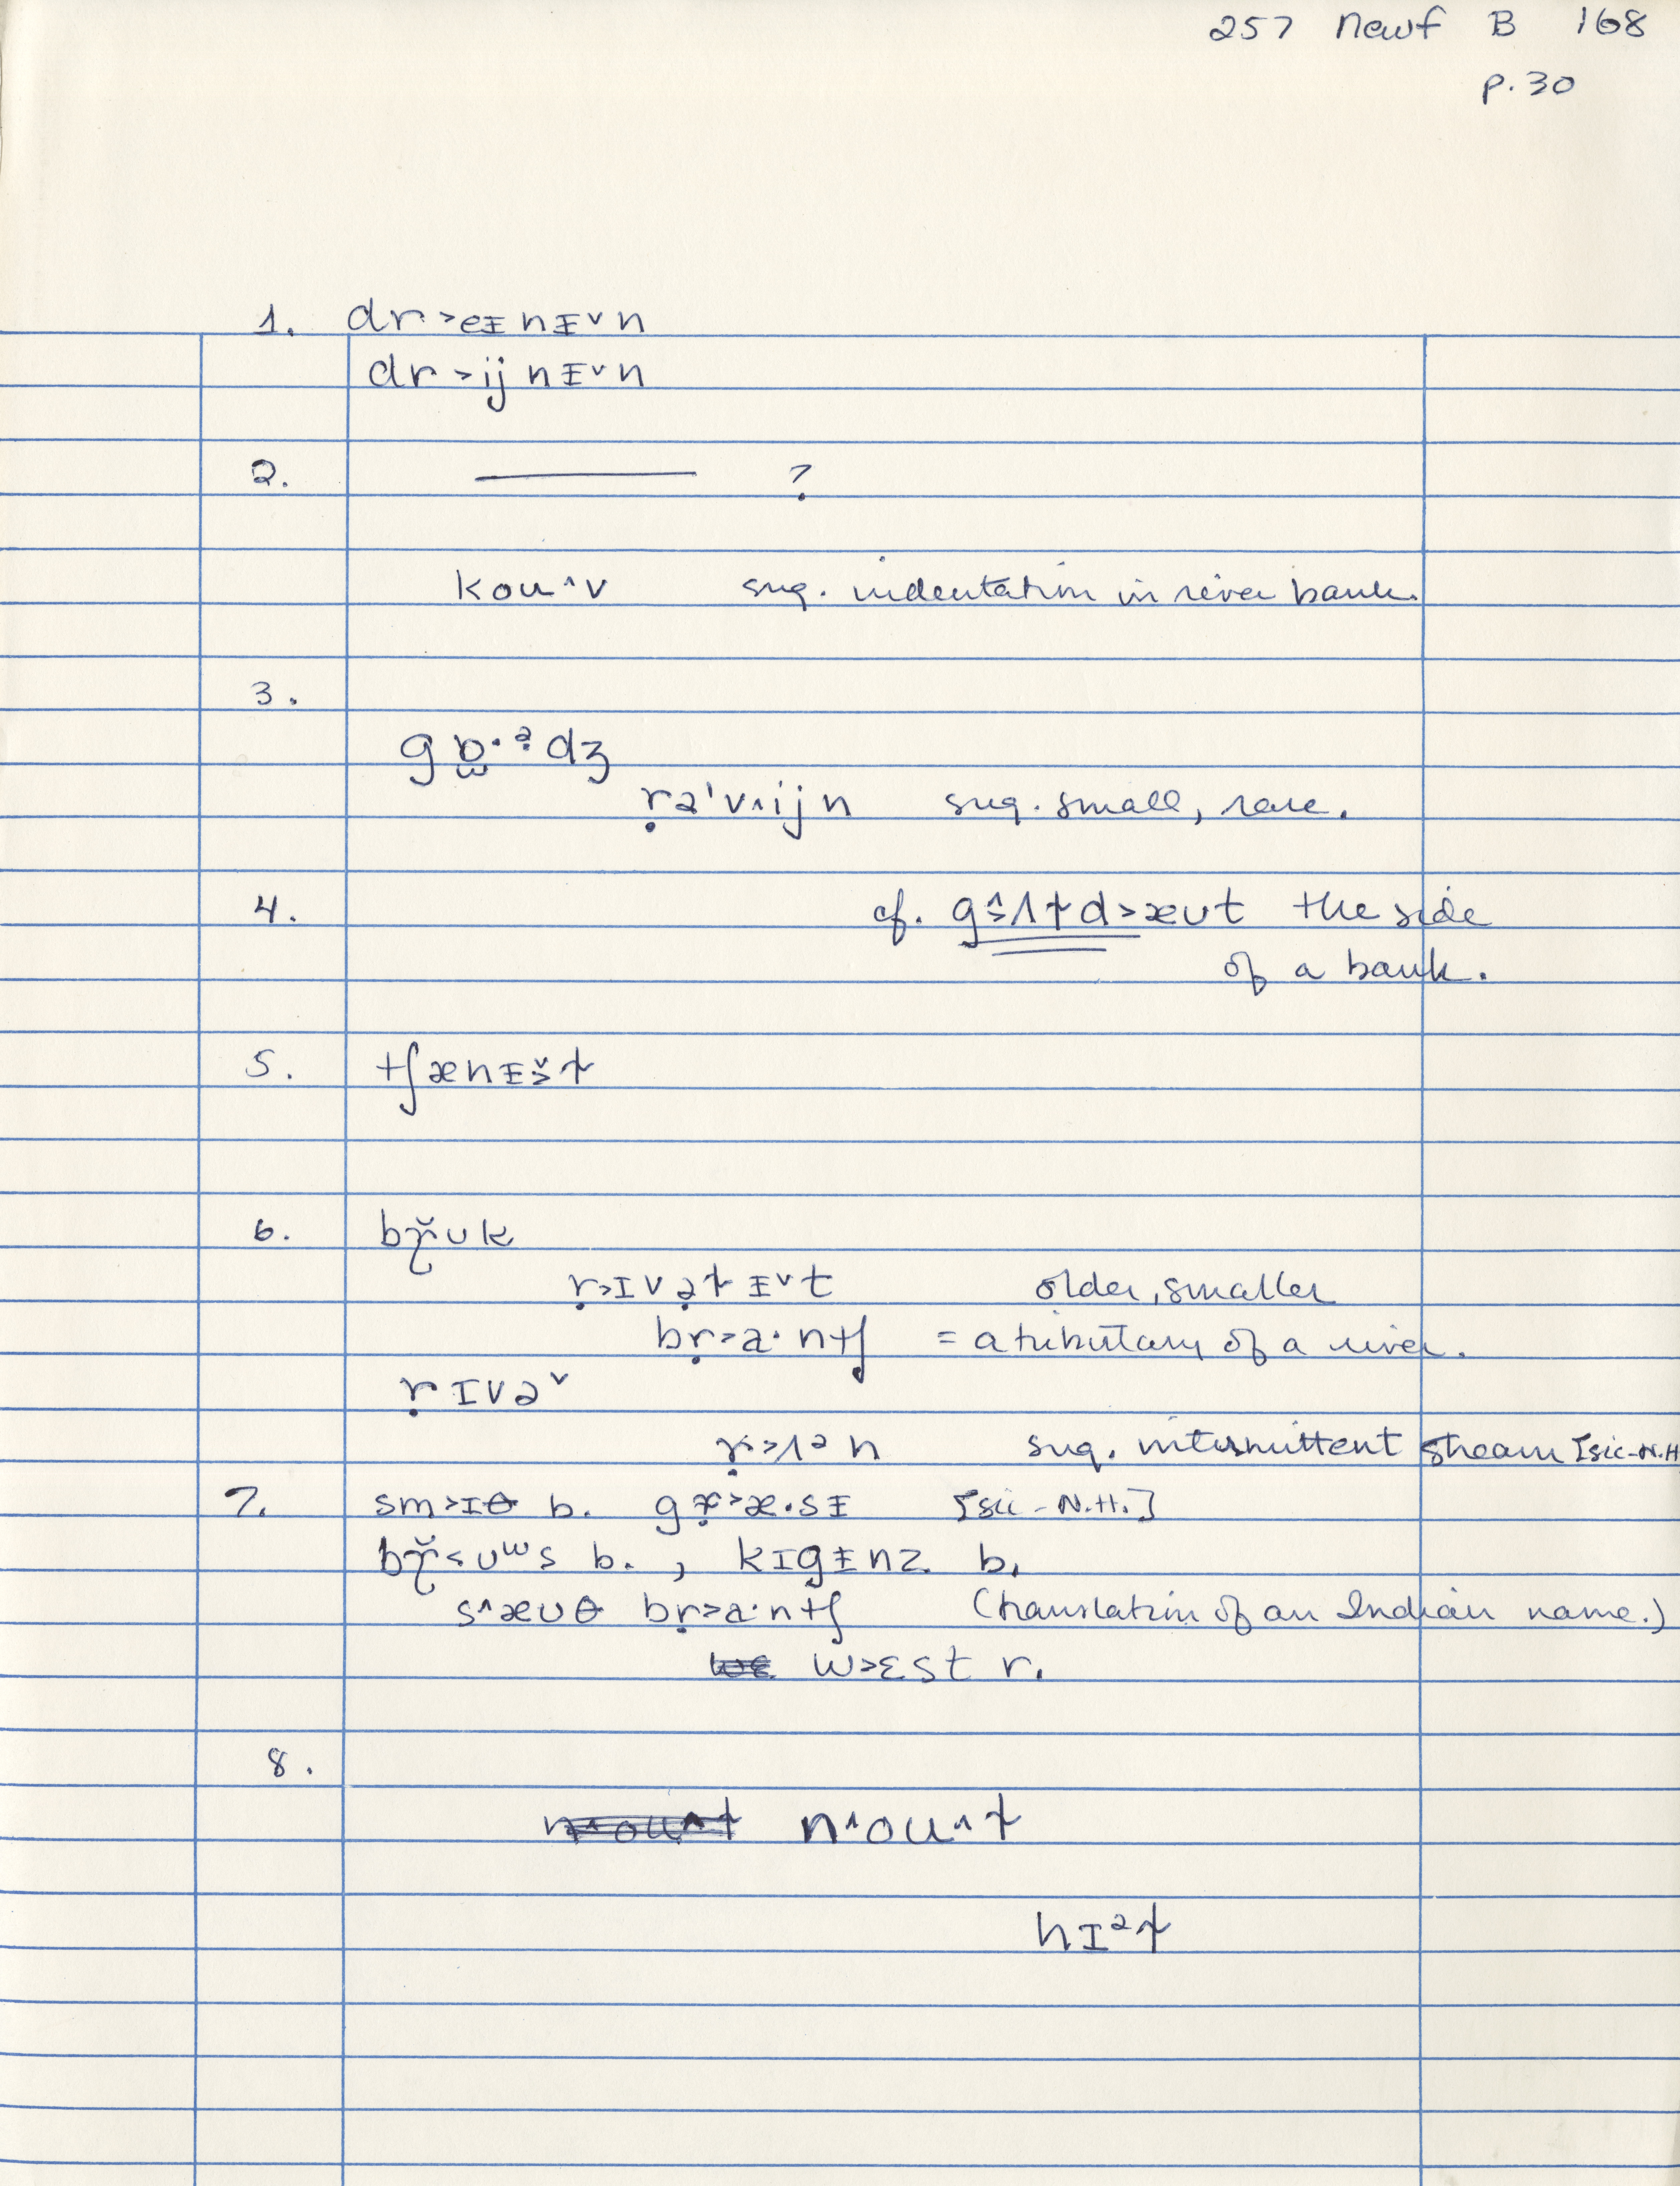 257 Newf B 168
p. 30
1. dr˃eᵻnᵻ˅n
dr˃ijnᵻ˅n
2. ——— ?
kou˄v sug. indentation in river bank.
3.
gɒ̣̫·ᵊ̣dʒ
ṛə'v˄ijn sug. small, rare.
4. cf. g˂̭ʌɫd˃æʊt the side
of a bank.
5. tʃænᵻ˅̣ɫ
6. bɽ̌ʊk
ṛ˃ɪvə̣ɫᵻ˅t older, smaller
bṛ˃a·ntʃ = a tributary of a river.
ṛɪvə˅
ṛ˃ʌᵊn sug. intermittent stream [sic-N.H
7. sm˃ɪθ b. gṛ˃æ·sᵻ [sic-N.H.]
bɽ̌˂ʊʷs b., kɪgᵻnz b.
s˄æʊθ bṛ˃a·ntʃ (translation of an Indian name.)
w˃ɛst r.
8.
n˄ou˄ɫ
hɪᵊɫ